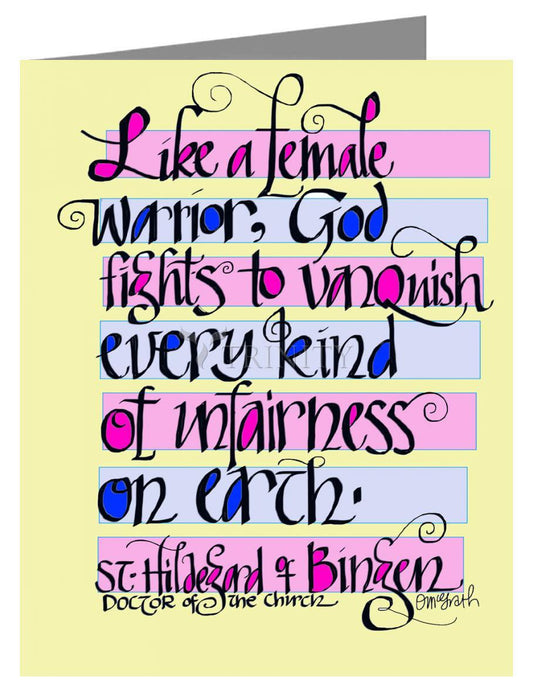 Like a female
warrior, God
fights to vanquish
every kind
TRINITY
of unfairness
on earth.
St. Hildegard of Bingen
Doctor of the Church
OMcGrath